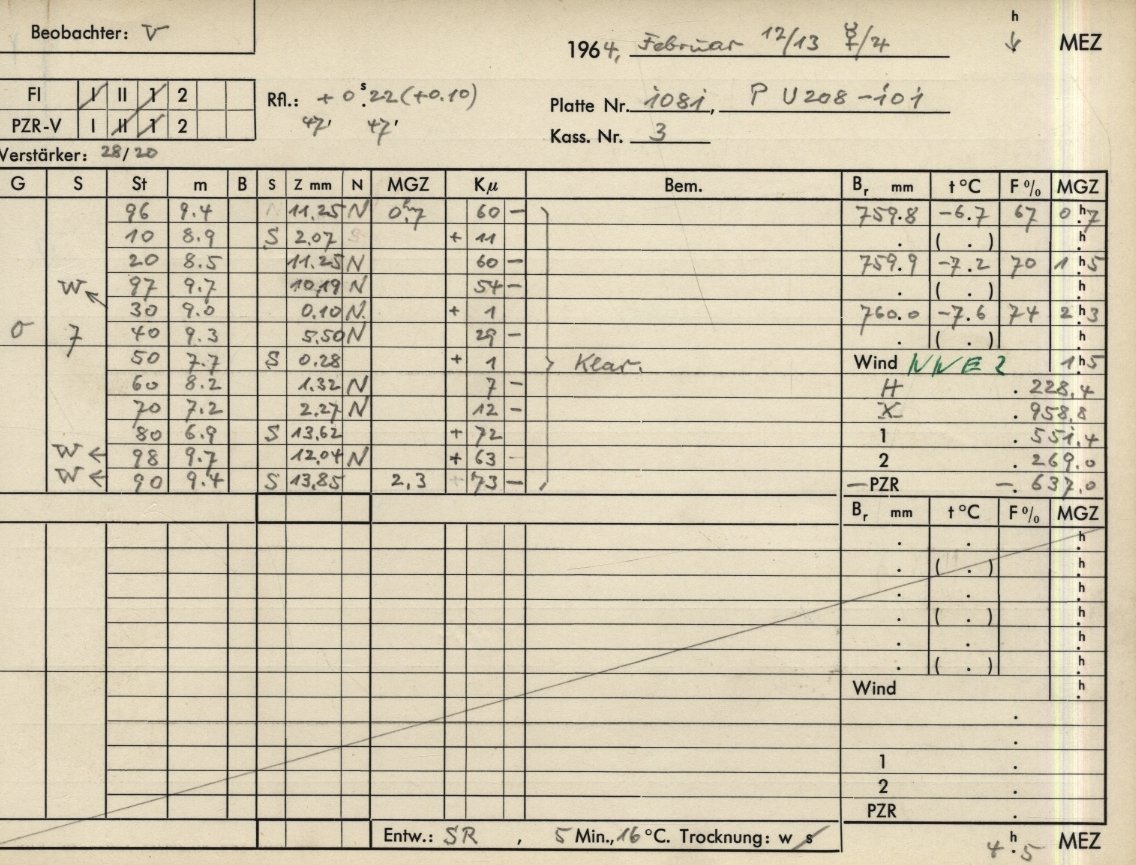 Beobachter: V
1964, Februar 12/13 ☿/♃ h ↓ MEZ
FI I II 1 2
PZR-V I II 1 2
Rfl.: + 0.ˢ22 (+0.10)
47' 47'
Platte Nr. 1081, P U208-101
Kass. Nr. 3
Verstärker: 28/20
G S St m B S Z mm N MGZ Kμ Bem. Br mm t °C F % MGZ
96 9.4 11.25 N 0ʰ.7 60 - 759.8 -6.7 67 0ʰ.7
10 8.9 S 2.07 + 11 . ( . ) h.
20 8.5 11.25 N 60 - 759.9 -7.2 70 1ʰ.5
W 97 9.7 10.19 N 54 - . ( . ) h.
30 9.0 0.10 N. + 1 760.0 -7.6 74 2ʰ.3
0 7 40 9.3 5.50 N 29 - . ( . ) h
50 7.7 S 0.28 + 1 Klar. Wind NNE 2 1ʰ.5
60 8.2 1.32 N 7 - H . 228,4
70 7.2 2.27 N 12 - X . 958,8
80 6.9 S 13.62 + 72 1 . 551,4
W ← 98 9.7 12.04 N + 63 - 2 . 269.0
W ← 90 9.4 S 13.85 2,3 + 73 - - PZR -. 637,0
Br mm t °C F % MGZ
. . h.
. ( . ) h.
. . h.
. ( . ) h.
. . h.
. ( . ) h.
Wind h.
.
.
1 .
2 .
PZR .
Entw.: SR , 5 Min., 16 °C. Trocknung: w s
4ʰ.5 MEZ